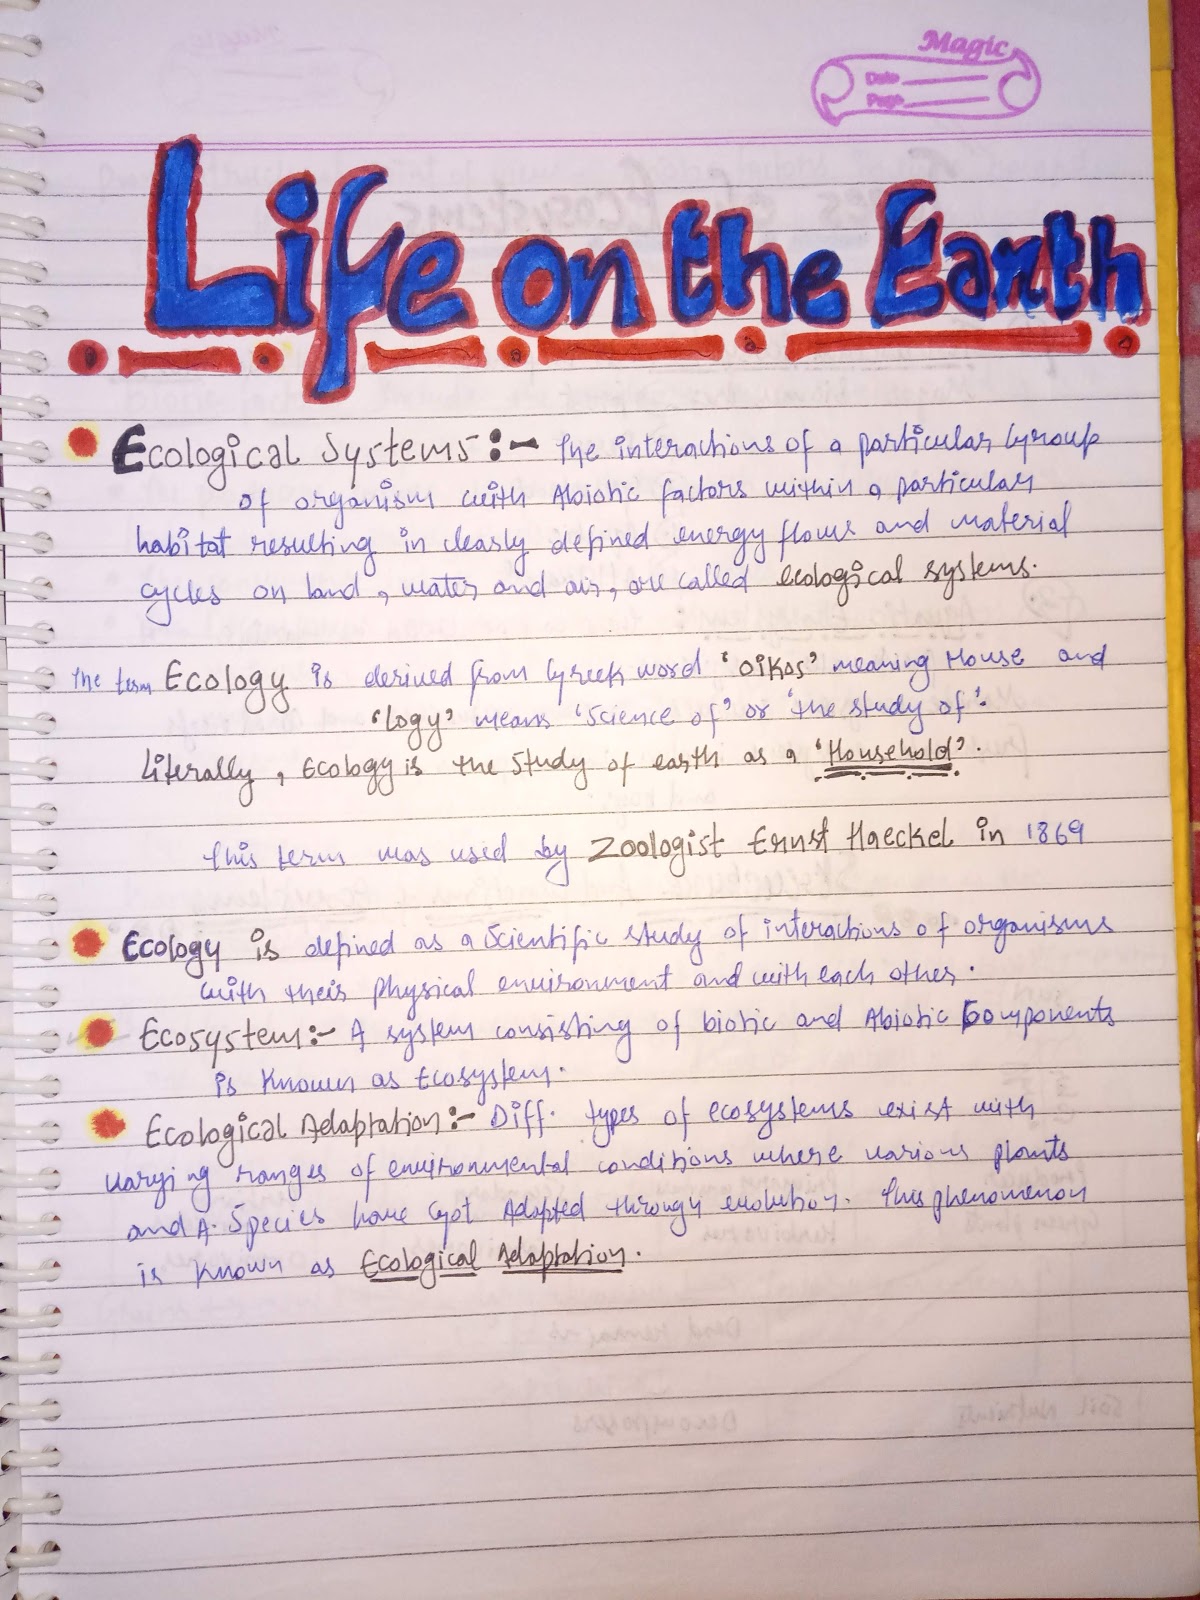 Magic
Date
Page
Life on the Earth
Ecological Systems :- The interactions of a particular Group
of organism with Abiotic factors within a particular
habitat resulting in clearly defined energy flows and material
cycles on land, water and air, are called ecological systems.
The term Ecology is derived from Greek word 'oikos' meaning House and
'logy' means 'Science of' or 'the study of'.
Literally, Ecology is the study of earth as a 'Household'.
This term was used by Zoologist Ernst Haeckel in 1869
Ecology is defined as a Scientific study of interactions of organisms
with their physical environment and with each other.
Ecosystem:- A system consisting of biotic and Abiotic Components
is known as Ecosystem.
Ecological Adaptation:- Diff. types of ecosystems exist with
varying ranges of environmental conditions where various plants
and A. Species have Got Adapted through evolution. This phenomenon
is known as Ecological Adaptation.